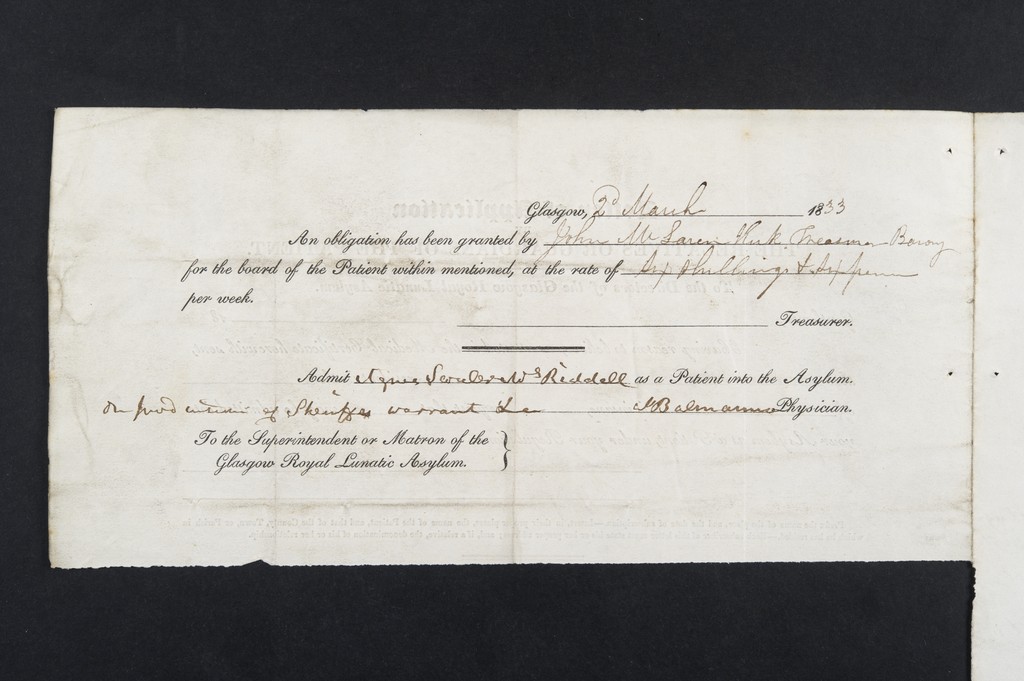 Glasgow, 2d March 1833
An obligation has been granted by John McLaren Treasurer Barony
for the board of the Patient within mentioned, at the rate of Six Shillings & Sixpence
per week.
Treasurer.
Admit Agnes Riddell as a Patient into the Asylum.
on production of Sheriffs warrant JBalmanno Physician.
To the Superintendent or Matron of the
Glasgow Royal Lunatic Asylum.